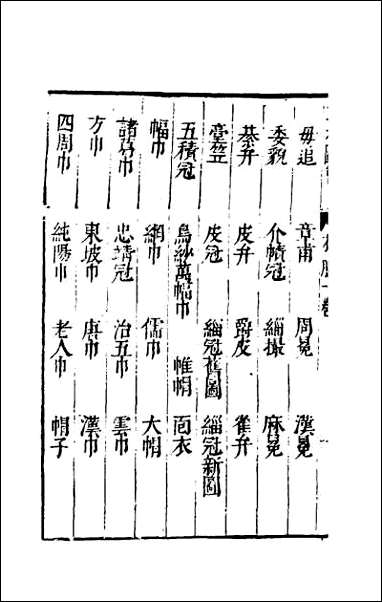 服一卷
毋追 章甫 周冕 漢冕
委貌 介幘冠 緇撮 麻冕
綦弁 皮弁 爵皮 雀弁
臺笠 皮冠 緇冠舊圖 緇冠新圖
五積冠 烏紗萬幅巾 帷帽 面衣
幅巾 網巾 儒巾 大帽
諸葛巾 忠靖冠 治五巾 雲巾
方巾 東坡巾 唐巾 漢巾
四周巾 純陽巾 老人巾 帽子